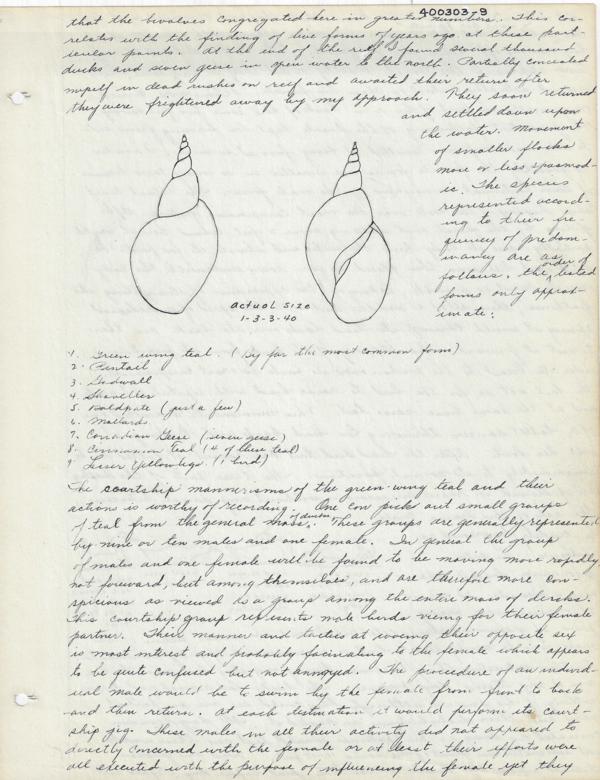 400303-9
that the bivalves congregated here in greater numbers. This cor-
relates with the finding of live forms of years ago at these part-
icular points. At the end of the reef I found several thousand
ducks and seven geese in open water to the north. Partially concealed
myself in dead rushes on reef and awaited their return after
they were frightened away by my approach. They soon returned
and settled down upon
the water. Movement
of smaller flocks
more or less spasmod-
ic. The species
represented accord-
ing to their fre-
quency of predom-
inancy are as
follows. the order of listed
forms only approx-
imate:
actual size
1-3-3-40
1. Green wing teal. (By far the most common form)
2. Pintail
3. Gadwall
4. Shoveller
5. Baldpate (just a few)
6. Mallards
7. Canadian Geese (seven geese)
8. Cinnamon Teal (4 of these teal)
9 Lesser Yellowlegs. (1 bird)
The courtship mannerisms of the green-wing teal and their
action is worthy of recording. One can pick out small groups
of teal from the general mass of ducks. These groups are generally represented
by nine or ten males and one female. In general the group
of males and one female will be found to be moving more rapidly
not forward, but among themselves, and are therefore more con-
spicious as viewed as a group among the entire mass of ducks.
This courtship group represents male birds vieing for their female
partner. Their manner and tactics at wooing their opposite sex
is most interest and probably facinating to the female which appears
to be quite confused but not annoyed. The procedure of an individ-
ual male would be to swim by the female from front to back
and then return. At each destination it would perform its court-
ship jig. These males in all their activity did not appeared to
directly concerned with the female or at least their efforts were
all executed with the purpose of influencing the female yet they